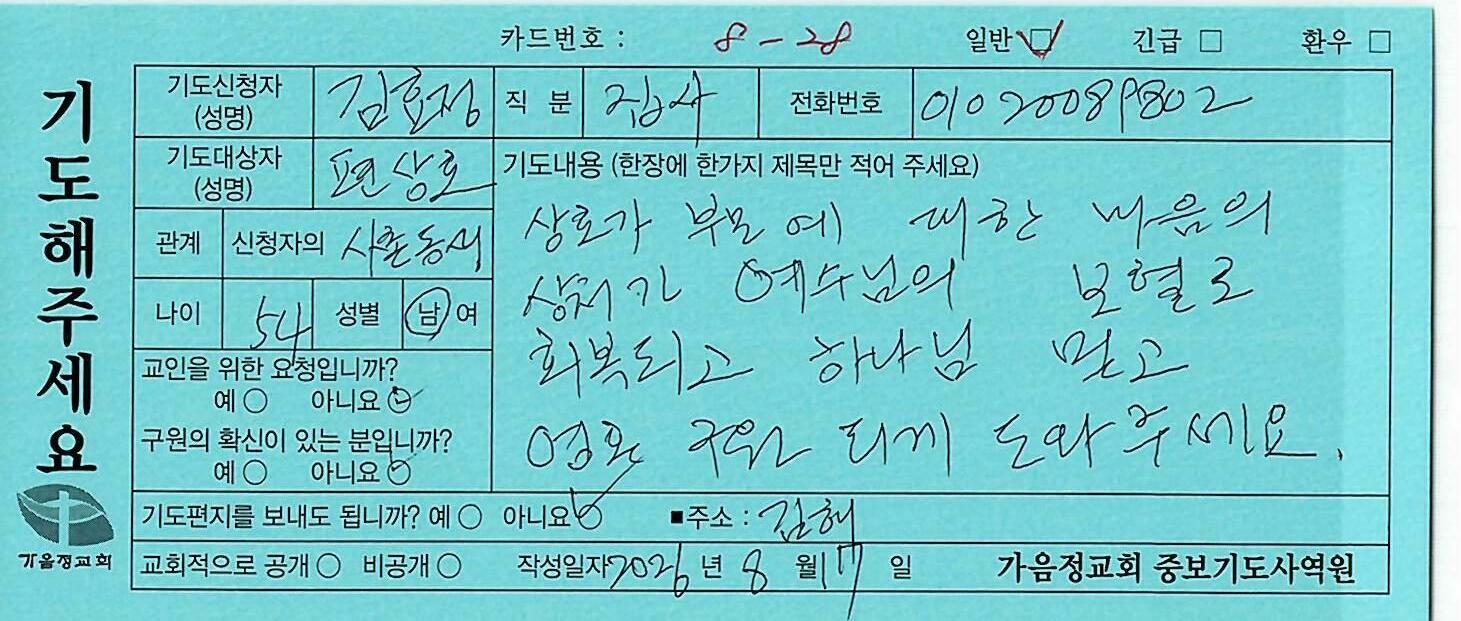 카드번호 : 8-28 일반 ☑ 긴급 □ 환우 □
기도해주세요
기도신청자 (성명) 김효정 직 분 집사 전화번호 01020089802
기도대상자 (성명) 편상호
기도내용 (한장에 한가지 제목만 적어 주세요)
상호가 부모에 대한 마음의
상처가 예수님의 보혈로
회복되고 하나님 믿고
영혼 구원 되게 도와주세요.
관계 신청자의 사촌동생
나이 54 성별 남 여
교인을 위한 요청입니까?
예 ○ 아니요 ○
구원의 확신이 있는 분입니까?
예 ○ 아니요 ○
기도편지를 보내도 됩니까? 예 ○ 아니요 ○ ■주소 : 김해
교회적으로 공개 ○ 비공개 ○ 작성일자 2026 년 8 월 17 일 가음정교회 중보기도사역원
가음정교회